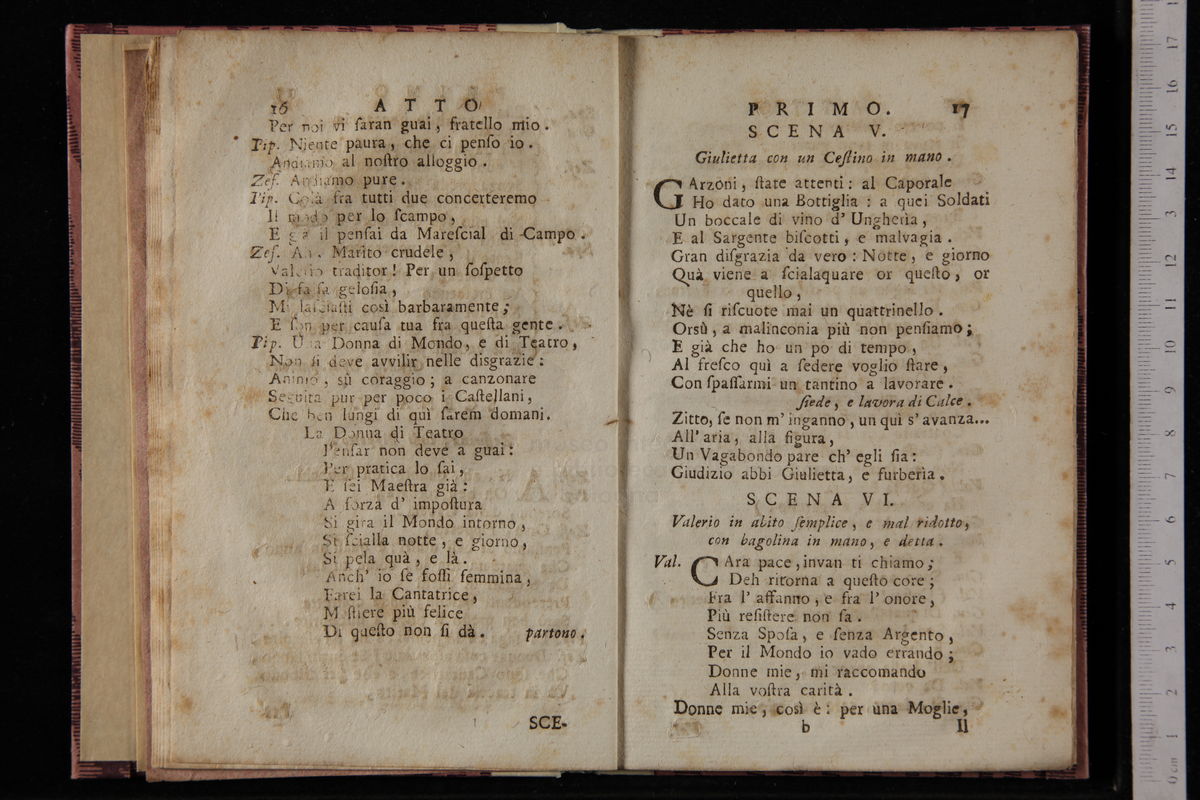 16 ATTO
Per noi vi ſaran guai, fratello mio.
Pip. Niente paura, che ci penſo io.
Andiamo al noſtro alloggio.
Zef. Andiamo pure.
Pip. Colà fra tutti due concerteremo
Il modo per lo ſcampo,
E già il penſai da Mareſcial di Campo.
Zef. Ah. Marito crudele,
Valerio traditor! Per un ſoſpetto
Di fa ſa geloſia,
Mi laſciaſti così barbaramente;
E ſon per cauſa tua fra queſta gente.
Pip. Una Donna di Mondo, e di Teatro,
Non ſi deve avvilir nelle diſgrazie:
Animo, sù coraggio; a canzonare
Seguita pur per poco i Caſtellani,
Che ben lungi di quì ſarem domani.
La Donna di Teatro
Penſar non deve a guai:
Per pratica lo ſai,
E ſei Maeſtra già:
A forza d' impoſtura
Si gira il Mondo intorno,
Si ſcialla notte, e giorno,
Si pela quà, e là.
Anch' io ſe foſſi femmina,
Farei la Cantatrice,
Meſtiere più felice
Di queſto non ſi dà. partono.
SCE-
PRIMO. 17
SCENA V.
Giulietta con un Ceſtino in mano.
GArzoni, ſtate attenti: al Caporale
Ho dato una Bottiglia: a quei Soldati
Un boccale di vino d' Ungherìa,
E al Sargente biſcotti, e malvagia.
Gran diſgrazia da vero: Notte, e giorno
Quà viene a ſcialaquare or queſto, or
quello,
Nè ſi riſcuote mai un quattrinello.
Orsù, a malinconia più non penſiamo;
E già che ho un po di tempo,
Al freſco quì a ſedere voglio ſtare,
Con ſpaſſarmi un tantino a lavorare.
ſiede, e lavora di Calce.
Zitto, ſe non m' inganno, un quì s' avanza...
All' aria, alla figura,
Un Vagabondo pare ch' egli ſia:
Giudizio abbi Giulietta, e furberìa.
SCENA VI.
Valerio in abito ſemplice, e mal ridotto,
con bagolina in mano, e detta.
Val. CAra pace, invan ti chiamo;
Deh ritorna a queſto core;
Fra l' affanno, e fra l' onore,
Più reſiſtere non fa.
Senza Spoſa, e ſenza Argento,
Per il Mondo io vado errando;
Donne mie, mi raccomando
Alla voſtra carità.
Donne mie, così è: per una Moglie,
b Il